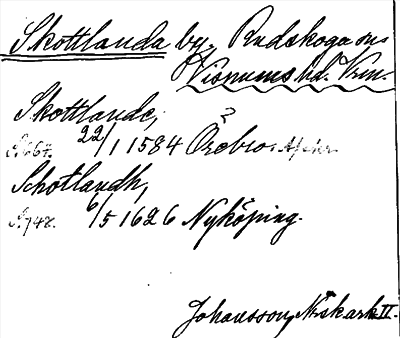 Skottlanda by, Rudskoga sn
Visnums hd. Vrm.
Skottlande,
S. 667. 22/1 1584 Örebro.
Schotlandh,
S. 748. 6/5 1626 Nyköping.
Johansson, Nskark II.